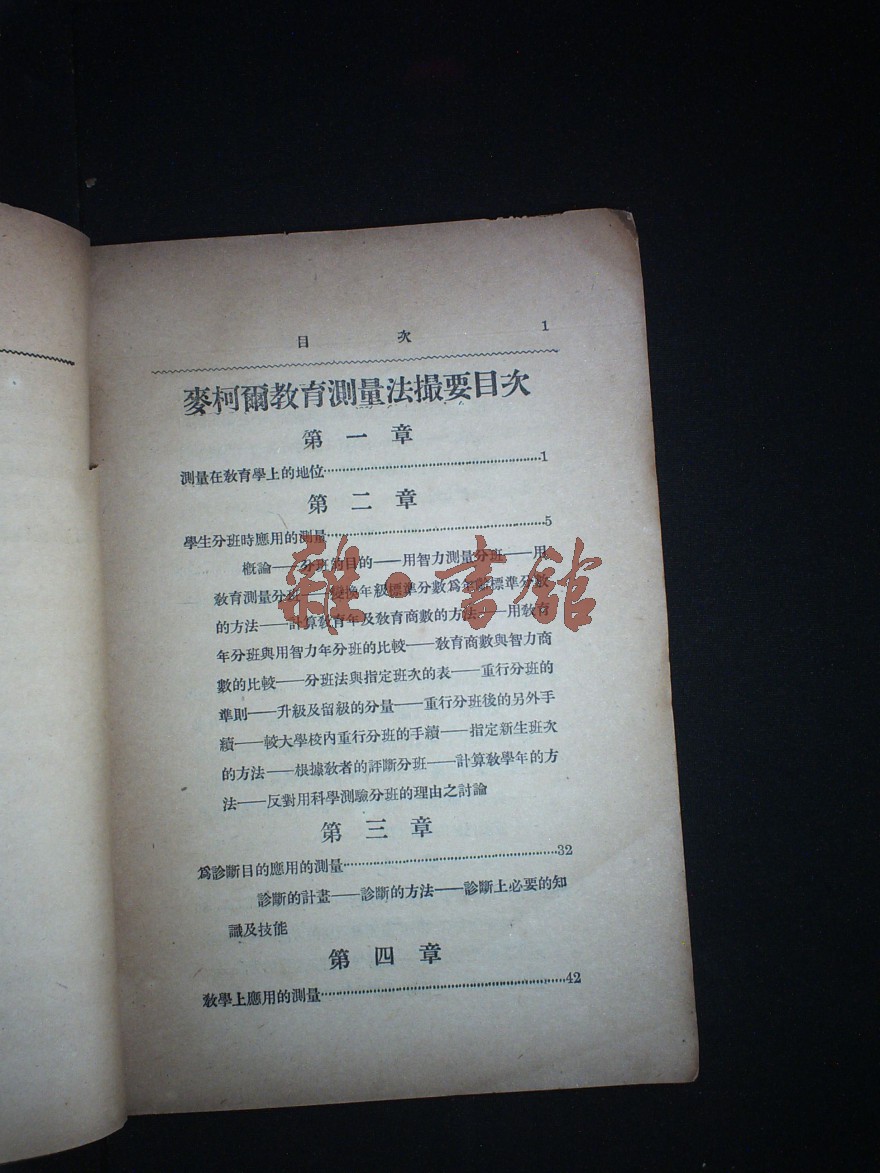 目 次 1
麥柯爾教育測量法撮要目次
第一章
測量在教育學上的地位……1
第二章
學生分班時應用的測量……5
概論——分班的目的——用智力測量分班——用
教育測量分班——變換年級標準分數爲年齡標準分數
的方法——計算教育年及教育商數的方法——用教育
年分班與用智力年分班的比較——教育商數與智力商
數的比較——分班法與指定班次的表——重行分班的
準則——升級及留級的分量——重行分班後的另外手
續——較大學校內重行分班的手續——指定新生班次
的方法——根據教者的評斷分班——計算教學年的方
法——反對用科學測驗分班的理由之討論
第三章
爲診斷目的應用的測量……32
診斷的計畫——診斷的方法——診斷上必要的知
識及技能
第四章
教學上應用的測量……42
雜·書館